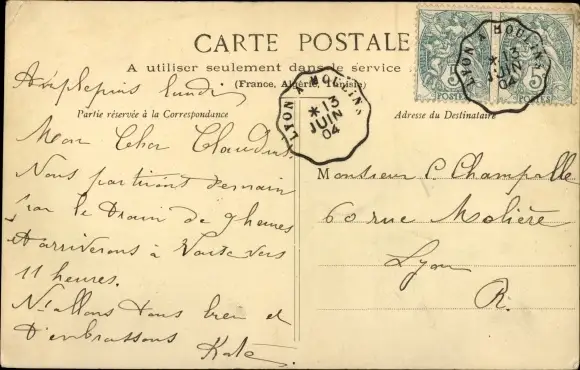 CARTE POSTALE
A utiliser seulement dans le service
(France, Algérie, Tunisie)
Partie réservée à la Correspondance
Adresse du Destinataire
LYON A MOULINS
* 13
JUIN
04
LYON A MOULINS
* 13
JUIN
04
POSTES
POSTES
Amplepuis lundi
Mon Cher Claudius.
Nous partirons demain
par le train de 9 heures
& arriverons à Vaise vers
11 heures.
Ns allons tous bien et
t'embrassons Kate.
Monsieur C. Champalle
60 rue Molière
Lyon
R.